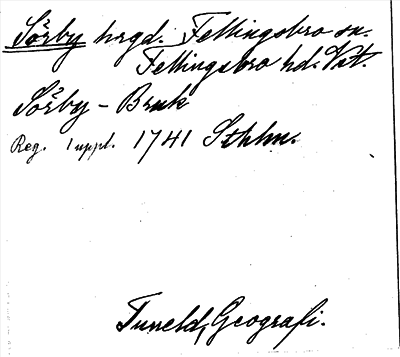 Sörby hrgd. Fellingsbro sn.
Fellingsbro hd. Vstm.
Sörby - Bruk
Reg. 1 uppl. 1741 Sthlm.
Tuneld, Geografi.